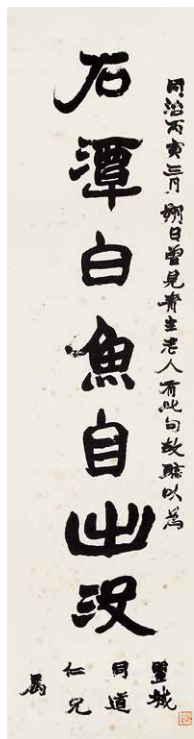 同治丙寅三月朔日曾見青主老人有此句故臨以為
石潭白魚自出没
豎城
同道
仁兄
属